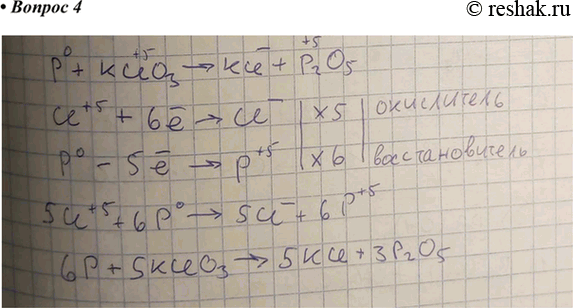 • Вопрос 4
© reshak.ru
P⁰ + KCl⁺⁵O₃ → KCl⁻ + P⁺⁵₂O₅
Cl⁺⁵ + 6ē → Cl⁻ | x5 | окислитель
P⁰ - 5ē → P⁺⁵ | x6 | восстановитель
5Cl⁺⁵ + 6P⁰ → 5Cl⁻ + 6P⁺⁵
6P + 5KClO₃ → 5KCl + 3P₂O₅